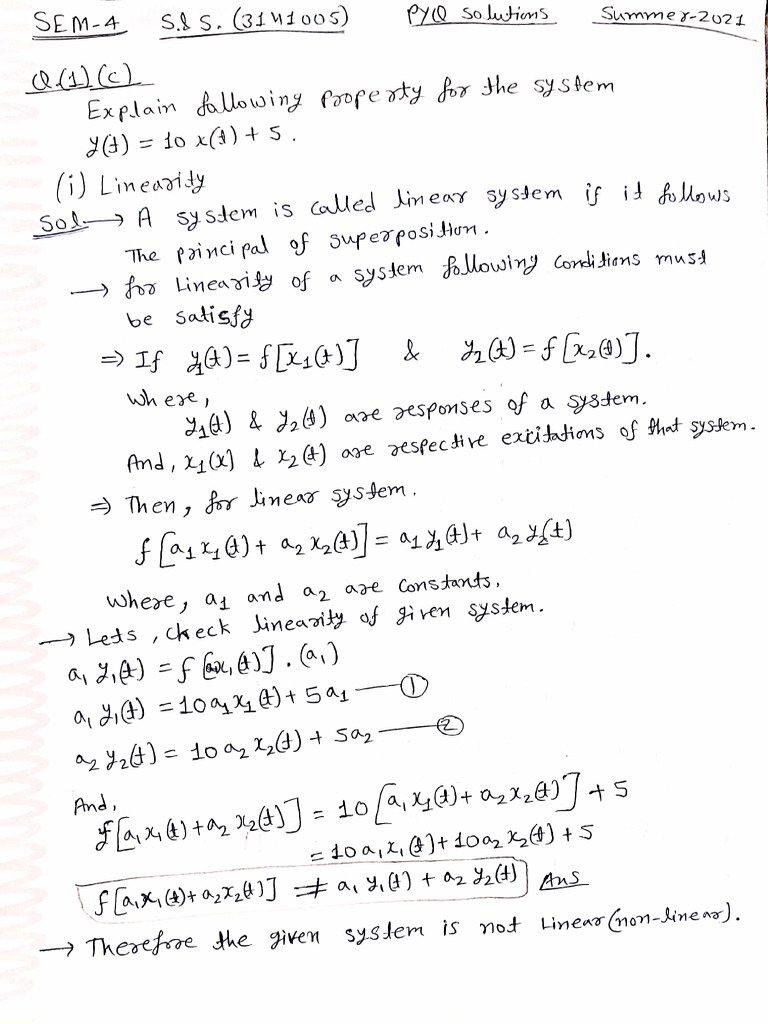 SEM-4 S.& S. (3141005) PYQ Solutions Summer-2021
Q.(1)(c)
Explain following property for the system
y(t) = 10 x(t) + 5.
(i) Linearity
Sol→ A system is called linear system if it follows
The principal of superposition.
→ for Linearity of a system following conditions must
be satisfy
⇒ If y₁(t) = f[x₁(t)] & y₂(t) = f[x₂(t)].
Where,
y₁(t) & y₂(t) are responses of a system.
And, x₁(x] & x₂(t) are respective excitations of that system.
⇒ Then, for linear system.
f[a₁x₁(t) + a₂x₂(t)] = a₁y₁(t) + a₂y₂(t)
Where, a₁ and a₂ are constants.
→ Lets, check linearity of given system.
a₁y₁(t) = f[x₁(t)].(a₁)
a₁y₁(t) = 10a₁x₁(t) + 5a₁ — ①
a₂y₂(t) = 10a₂x₂(t) + 5a₂ — ②
And,
f[a₁x₁(t) + a₂x₂(t)] = 10[a₁x₁(t) + a₂x₂(t)] + 5
= 10a₁x₁(t) + 10a₂x₂(t) + 5
f[a₁x₁(t) + a₂x₂(t)] ≠ a₁y₁(t) + a₂y₂(t) Ans
→ Therefore the given system is not Linear (non-linear).